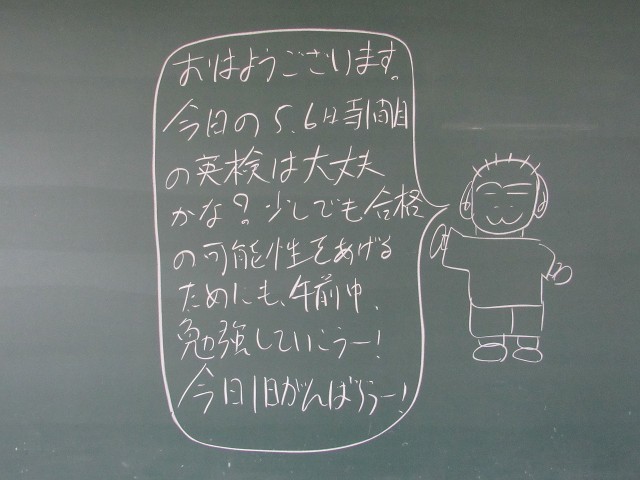 おはようございます。
今日の5、6時間目
の英検は大丈夫
かな？少しでも合格
の可能性をあげる
ためにも、午前中、
勉強していこうー！
今日1日がんばろうー！